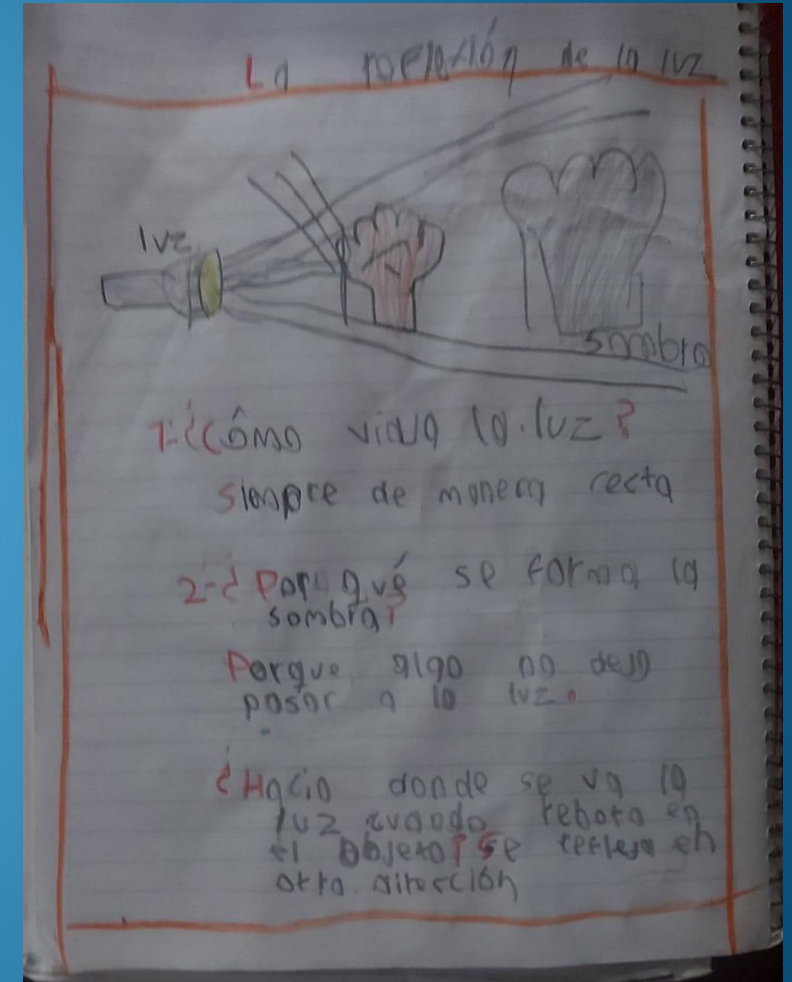 La reflexión de la luz
luz
sombra
1-¿Cómo viaja la luz?
siempre de manera recta
2-¿Por qué se forma la
sombra?
Porque algo no deja
pasar a la luz.
¿Hacia donde se va la
luz cuando rebota en
el objeto? Se refleja en
otra dirección